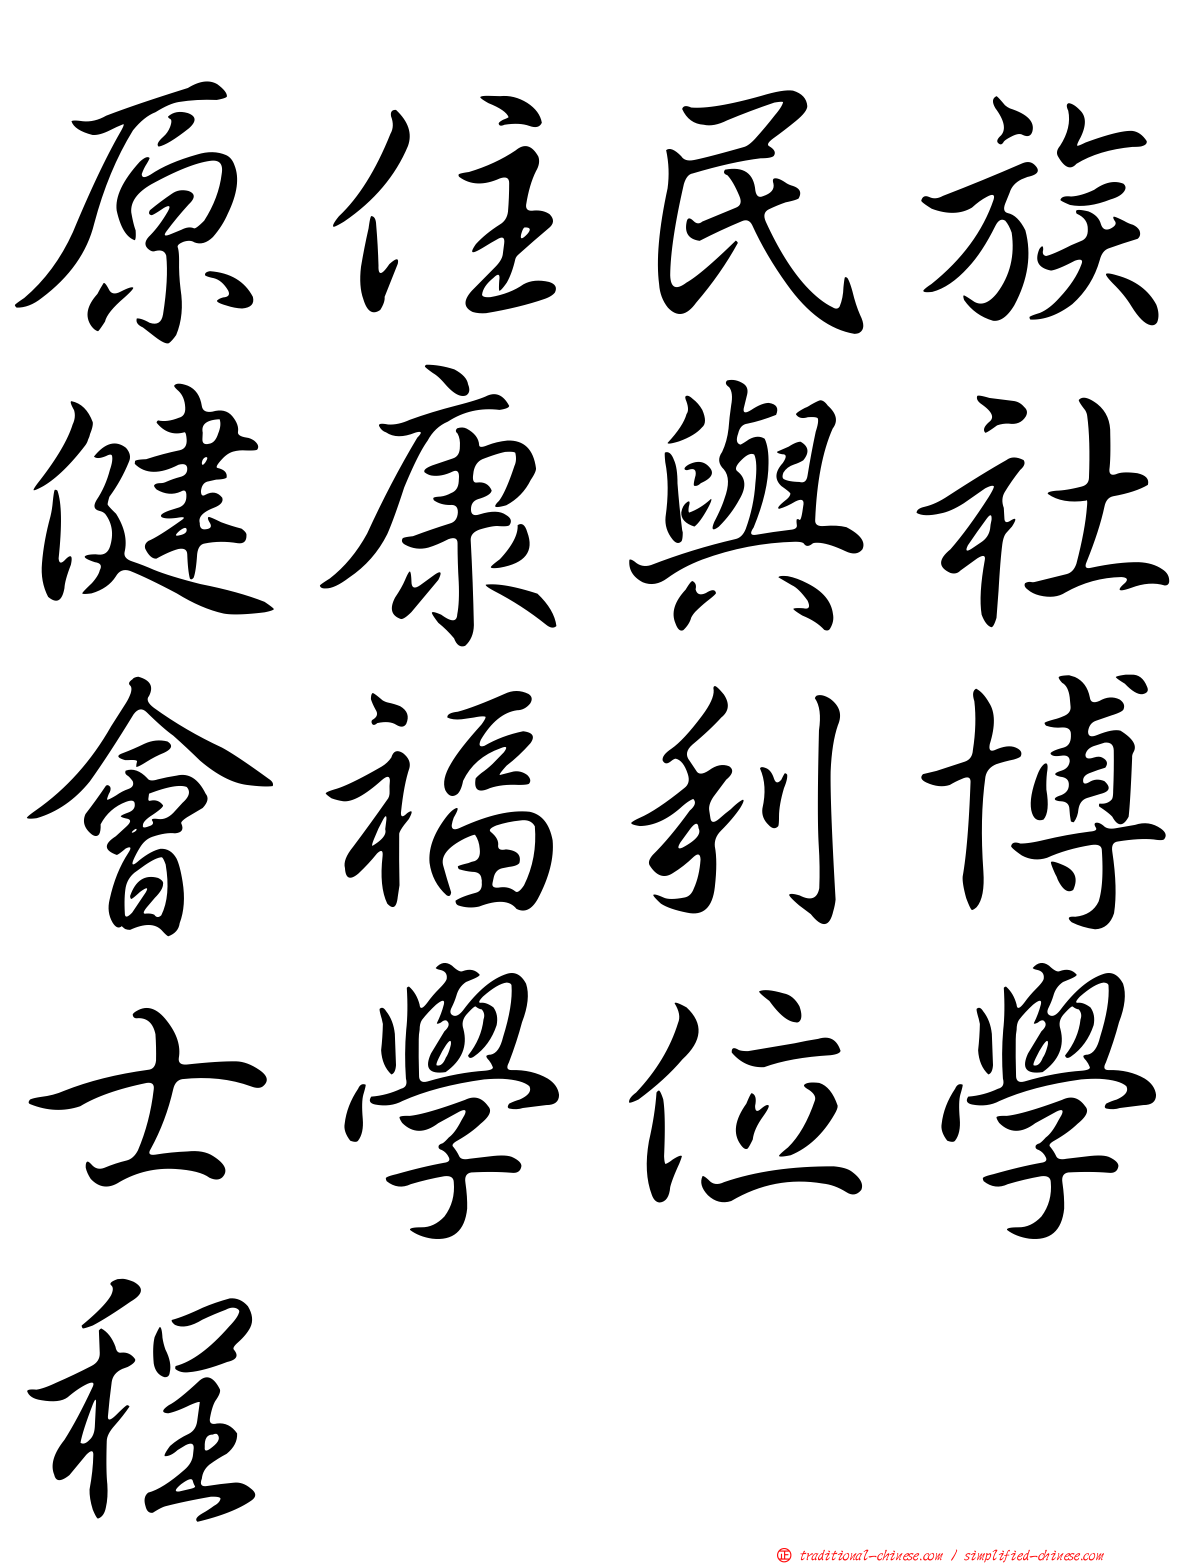 原住民族
健康與社
會福利博
士學位學
程
正 traditional-chinese.com / simplified-chinese.com